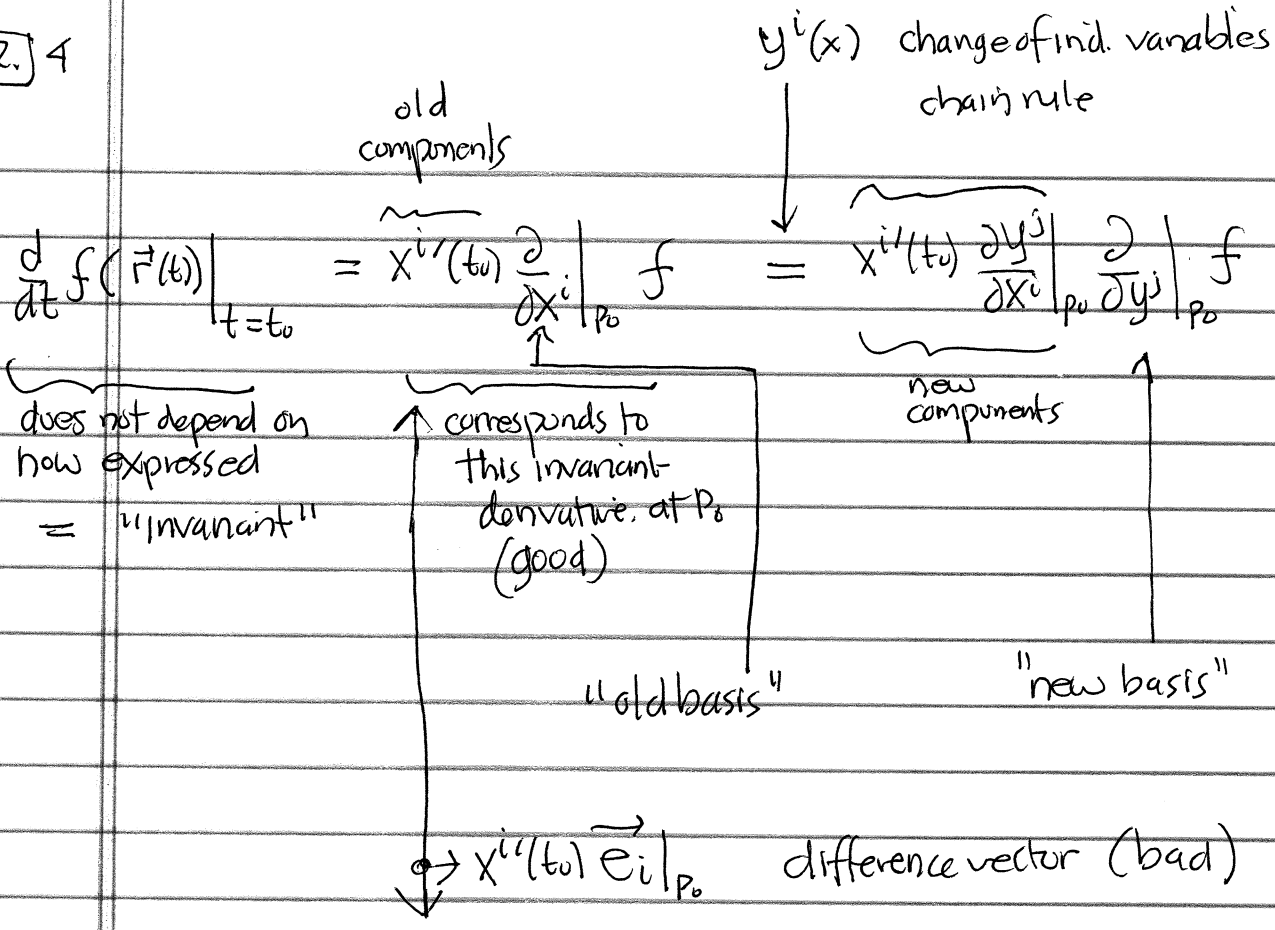 2.] 4
y^i(x) change of ind. variables
chain rule
old
components
d/dt f(r⃗(t))|_{t=t_0} = x^i'(t_0) ∂/∂x^i|_{p_0} f = x^i'(t_0) ∂y^j/∂x^i|_{p_0} ∂/∂y^j|_{p_0} f
does not depend on
how expressed
= "invariant"
corresponds to
this invariant
derivative. at P_0
(good)
new
components
"old basis"
"new basis"
x^i'(t_0) e⃗_i|_{p_0} difference vector (bad)